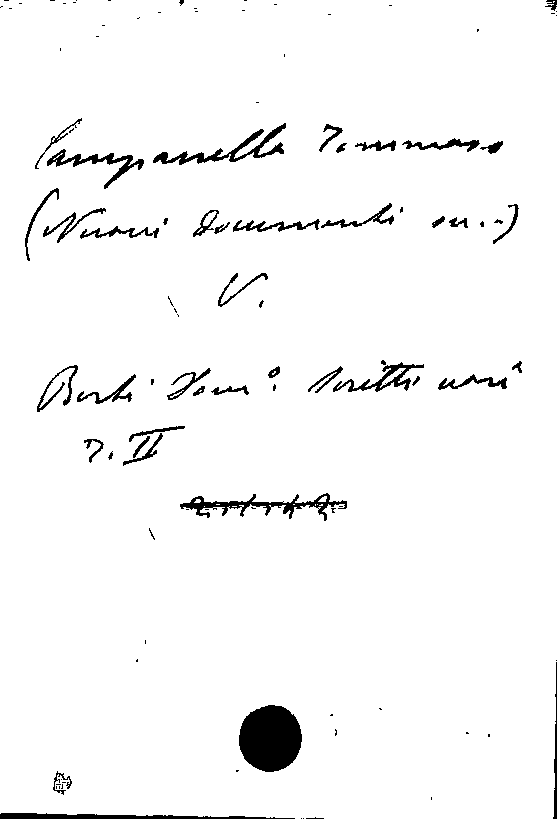 Campanella Tommaso
(Nuovi documenti su..)
V.
Berti Dom°. Scritti vari
T. II